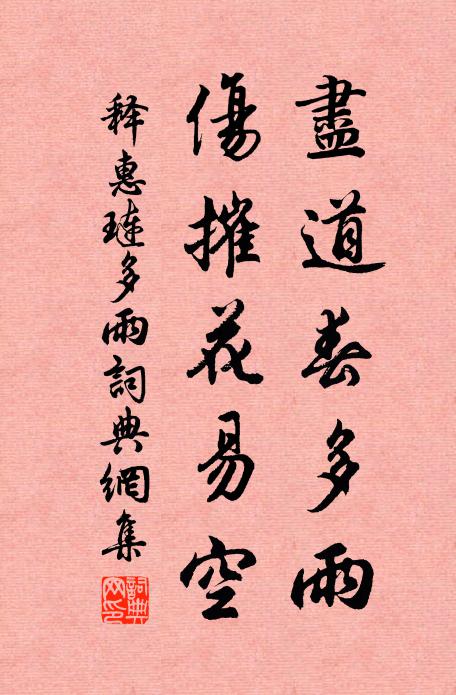 盡道春多雨
傷摧花易空
释惠琏多雨詞典網集
詞典
网印